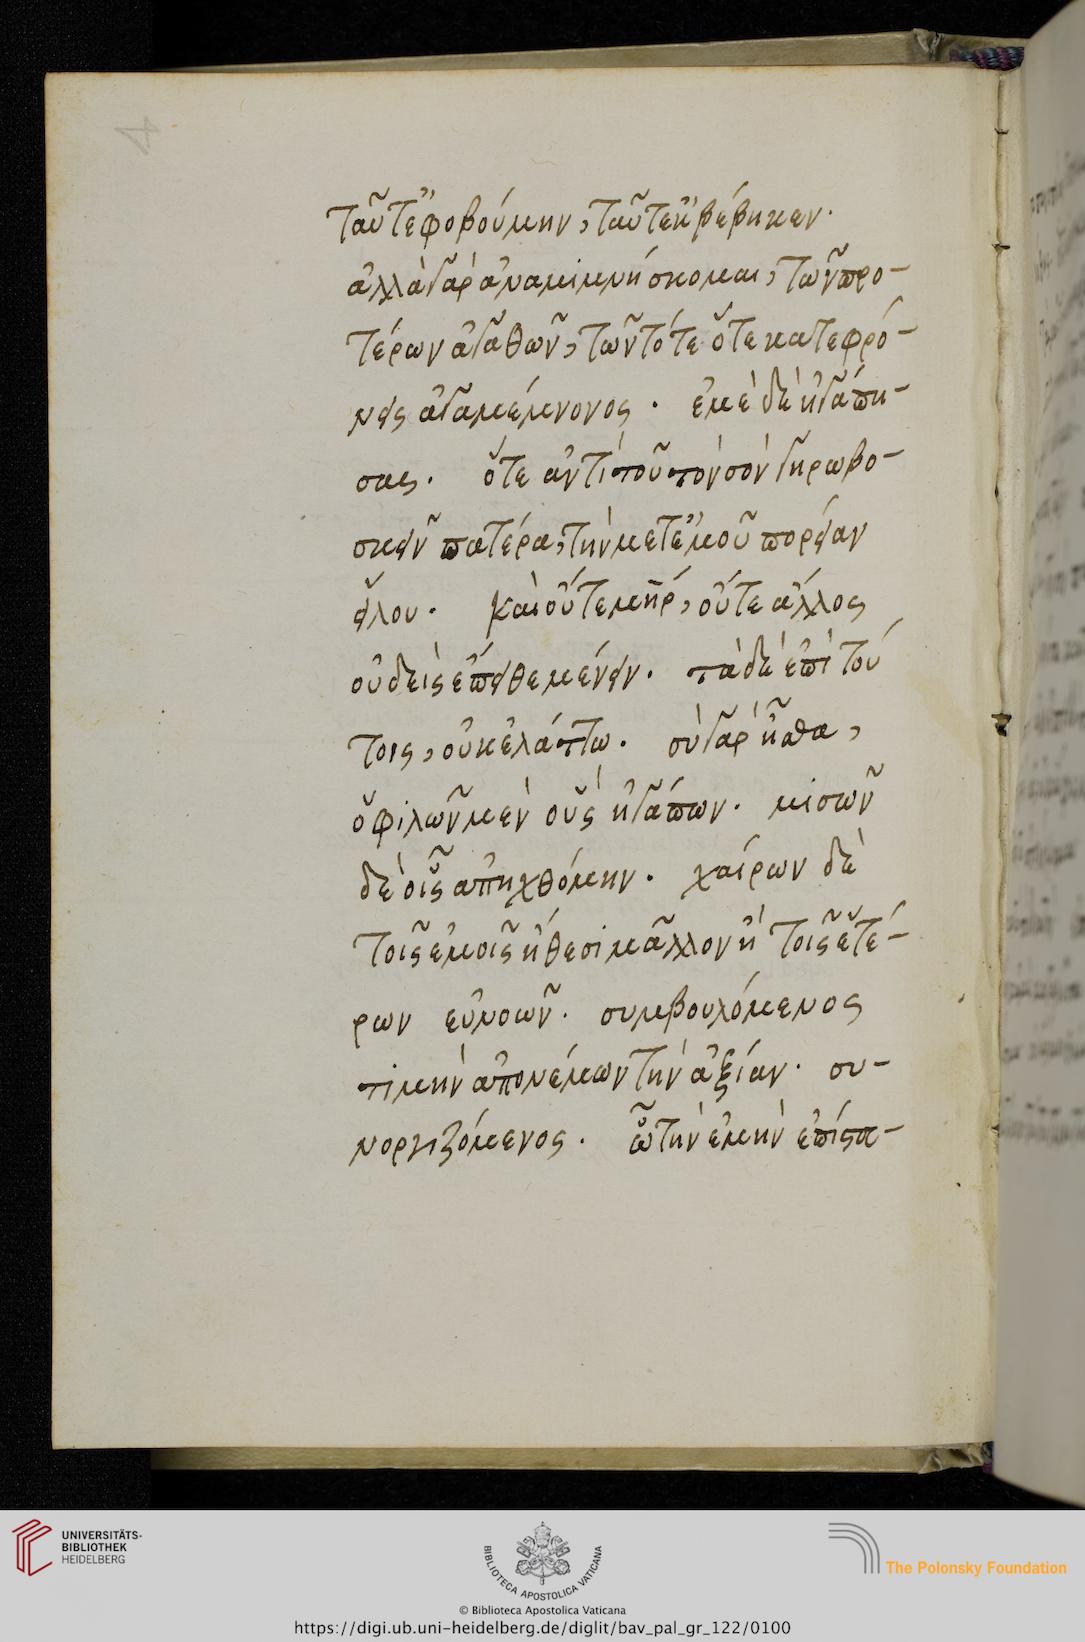 ταῦτ ἐφοβούμην, ταῦτ ἐκβέβηκεν·
ἀλλὰ γὰρ ἀναμιμνήσκομαι, τῶν προ-
τέρων ἀγαθῶν, τῶν τότε ὅτε κατεφρό-
νεις ἀγαμέμνονος · ἐμὲ δὲ ἠγάπη-
σας · ὅτε ἀντὶ τοῦ τὸν σὸν γηρωβο-
σκεῖν πατέρα, τὴν μετ ἐμοῦ πορείαν
εἵλου · καὶ οὔτε μῆρ, οὔτε ἄλλος
οὐδεὶς ἔπειθε μένειν · τὰ δὲ ἐπὶ τού
τοις, οὐκ ἐλάττω · σὺ γὰρ ἦσθα,
ὁ φιλῶν μὲν οὓς ἠγάπων · μισῶν
δὲ οἷς ἀπηχθόμην · χαίρων δὲ
τοῖς ἐμοῖς ἤθεσι μᾶλλον ἢ τοῖς ἑτέ-
ρων εὐνοῶν · συμβουλόμενος
τιμὴν ἀπονέμων τὴν ἀξίαν · συ-
νοργιζόμενος · ὦ τὴν ἐμὴν ἐπίστα-
UNIVERSITÄTS-
BIBLIOTHEK
HEIDELBERG
BIBLIOTECA APOSTOLICA VATICANA
The Polonsky Foundation
© Biblioteca Apostolica Vaticana
https://digi.ub.uni-heidelberg.de/diglit/bav_pal_gr_122/0100